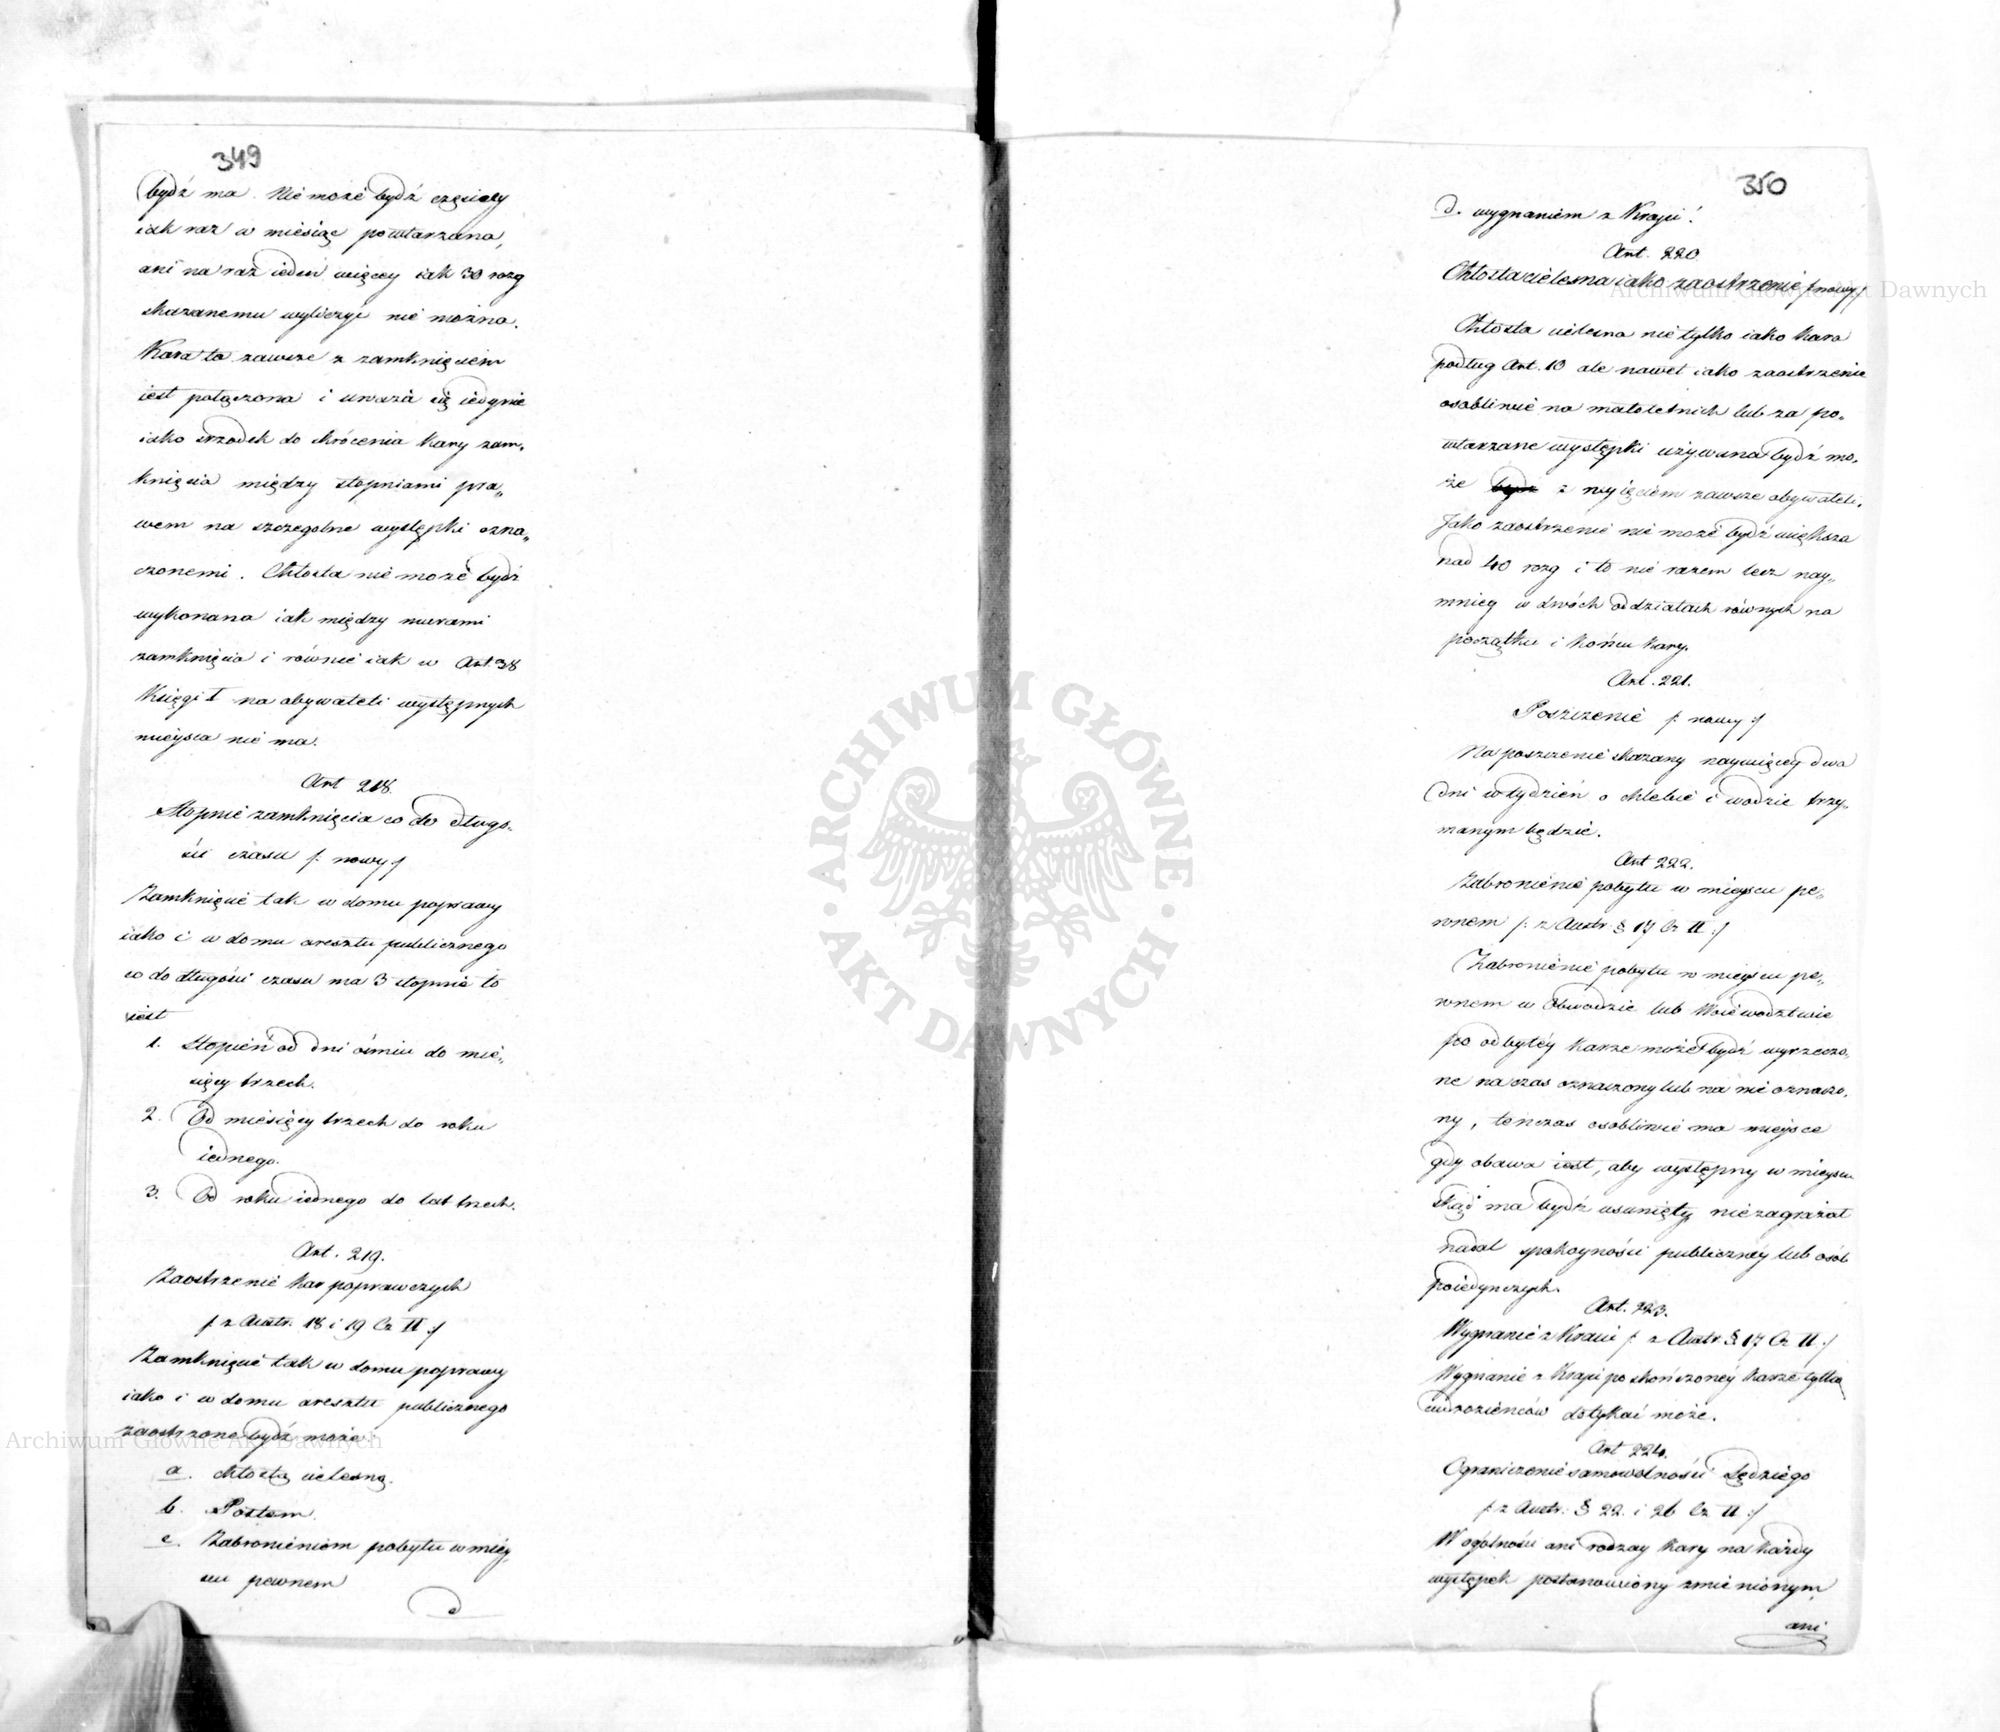 349
bydź ma. Nie może bydź częściey
iak raz w miesiąc powtarzana,
ani na raz ieden więcey iak 30 rozg
skazanemu wyliczyć nie można.
Kara ta zawsze z zamknięciem
iest połączona i uważa się iedynie
iako srzodek do skrócenia kary zam„
knięcia między stopniami pra„
wem na szczególne występki ozna„
czonemi. Chłosta nie może bydź
wykonana iak między murami
zamknięcia i równie iak w Art. 38
Księgi I na obywateli występnych
mieysca nie ma.
Art 218.
Stopnie zamknięcia co do długo„
ści czasu /: nowy :/
Zamknięcie tak w domu poprawy
iako i w domu aresztu publicznego
co do długości czasu ma 3 stopnie to
iest
1. Stopień od dni ośmiu do mie„
sięcy trzech.
2. Od miesięcy trzech do roku
iednego.
3. Od roku iednego do lat trzech.
Art. 219.
Zaostrzenie kar poprawczych
/: z Austr. 18 i 19 Cz II :/
Zamknięcie tak w domu poprawy
iako i w domu aresztu publicznego
zaostrzone bydź może
a. chłostą cielesną.
b. Postem.
c. Zabronieniem pobytu w miey
scu pewnem
d
350
d. wygnaniem z Kraju.
Art. 220
Chłosta cielesna iako zaostrzenie /: nowy :/
Chłosta cielesna nie tylko iako kara
podług Art. 10 ale nawet iako zaostrzenie
osobliwie na małoletnich lub za po„
wtarzane występki używana bydź mo„
że bydź z wyięciem zawsze obywateli.
Jako zaostrzenie nie może bydź większa
nad 40 rozg i to nie razem lecz nay„
mniey w dwóch oddziałach równych na
początku i końcu kary.
Art. 221.
Poszczenie /: nowy :/
Na poszczenie skazany naywięcey dwa
dni w tydzień o chlebie i wodzie trzy„
manym będzie.
Art 222.
Zabronienie pobytu w mieyscu pe„
wnem /: z Austr. § 17 Cz II :/
Zabronienie pobytu w mieyscu pe„
wnem w Obwodzie lub Woiewodztwie
po odbytéy karze może bydź wyrzeczo„
ne na czas oznaczony lub na nie oznaczo„
ny, tenczas osobliwie ma mieysce
gdy obawa iest, aby występny w mieyscu
skąd ma bydź usunięty nie zagrażał
nadal spokoyności publiczney lub osób
poiedynczych.
Art. 223.
Wygnanie z Kraiu /: z Austr. § 17 Cz II :/
Wygnanie z Kraju po skończonéy karze tylko
cudzoziemców dotykać może.
Art 224.
Ograniczenie samowolności Sędziego
/: z Austr. § 22. i 26 Cz II :/
W ogólności ani rodzay kary na każdy
występek postanowiony zmienionym,
ani
ARCHIWUM GŁÓWNE AKT DAWNYCH
Archiwum Główne Akt Dawnych
Archiwum Główne Akt Dawnych